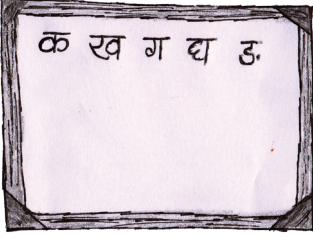 क ख ग घ ङ